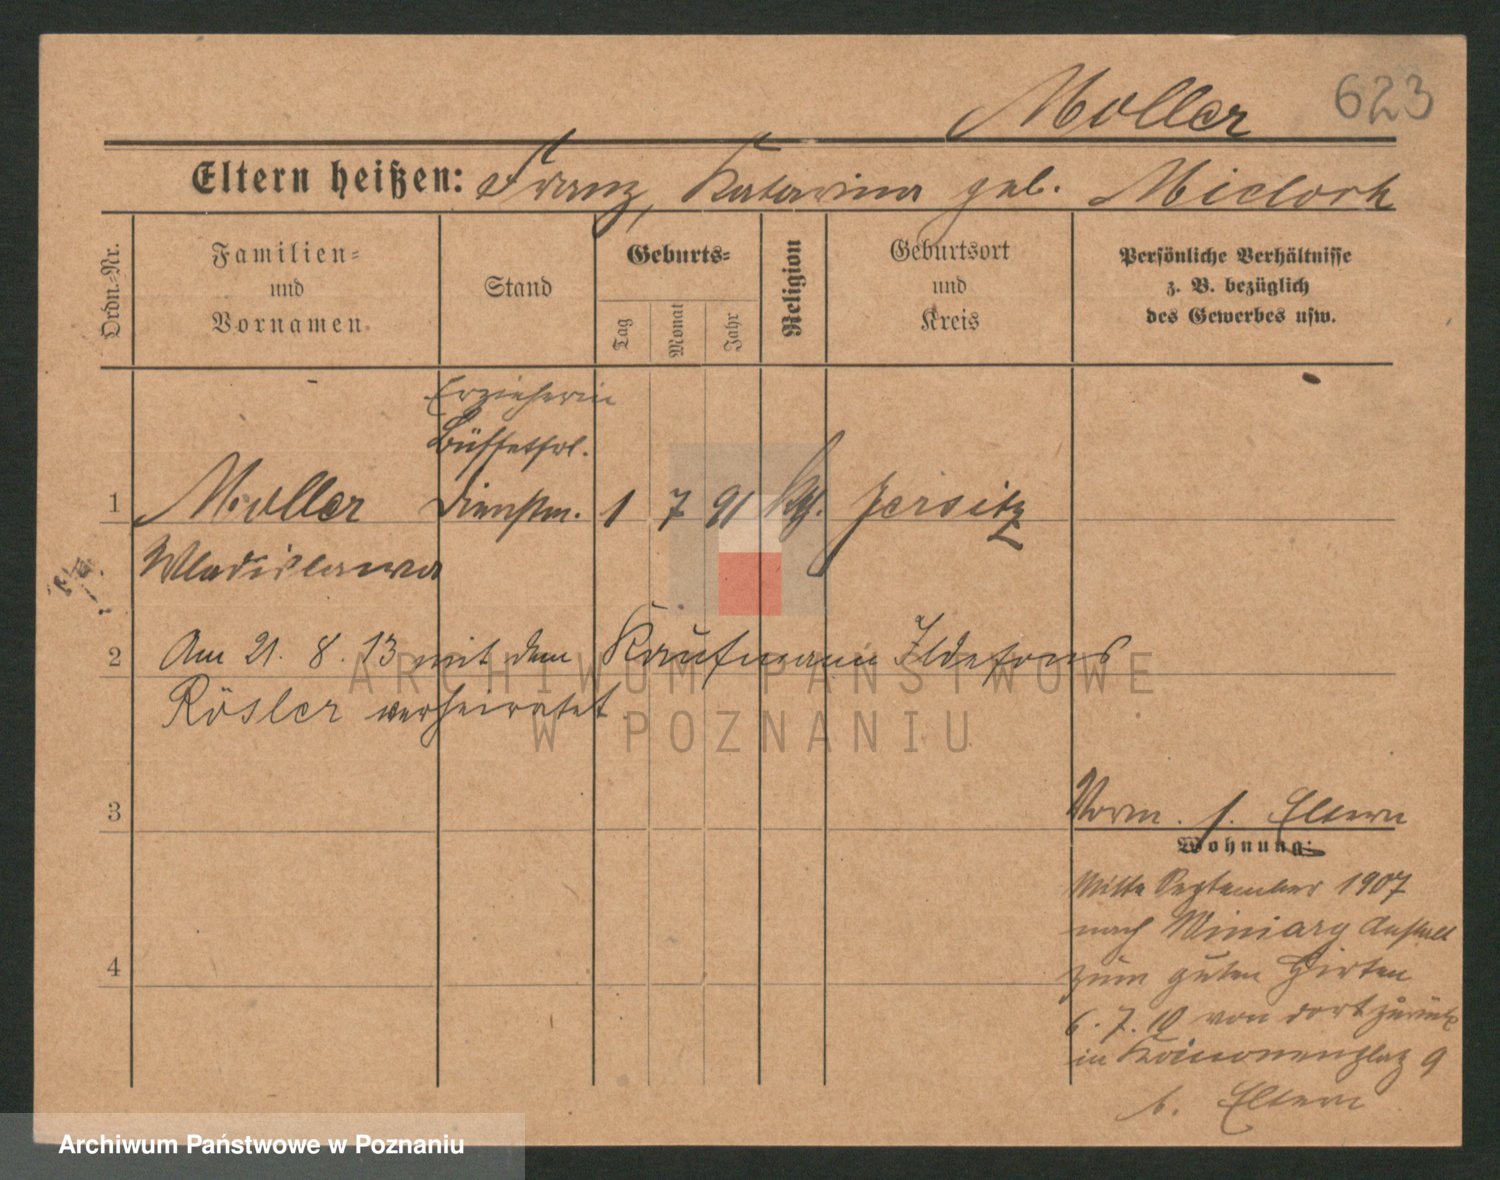 Moller 623
Eltern heißen: Franz, Katarina geb.
Ordn.-Nr.
Familien=
und
Vornamen.
Stand
Geburts=
Tag
Monat
Jahr
Religion
Geburtsort
und
Kreis
Persönliche Verhältnisse
z. B. bezüglich
des Gewerbes usw.
Erzieherin
Büffetfrl.
1 Moller Dienstm. 1 7 91 kth. Jersitz
Wladislawa
2 Am 21. 8. 13 mit dem Kaufmann Ildefons
Rösler verheiratet.
3
4
Vorm. s. Eltern
Wohnung:
Mitte September 1907
nach Winiary Anstalt
zum guten Hirten
6. 7. 10 von dort zurück
in 9
b. Eltern
ARCHIWUM PAŃSTWOWE
W POZNANIU
Archiwum Państwowe w Poznaniu